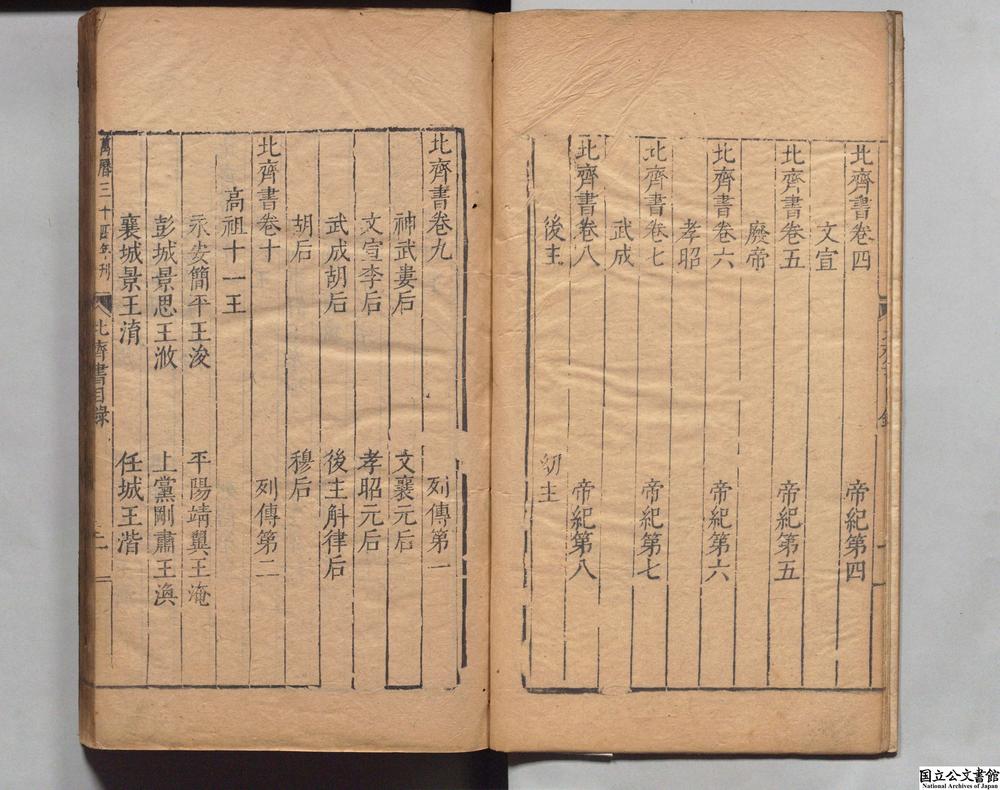 北齊書卷四 帝紀第四
文宣
北齊書卷五 帝紀第五
廢帝
北齊書卷六 帝紀第六
孝昭
北齊書卷七 帝紀第七
武成
北齊書卷八 帝紀第八
後主 幼主
北齊書卷九 列傳第一
神武婁后 文襄元后
文宣李后 孝昭元后
武成胡后 後主斛律后
胡后 穆后
北齊書卷十 列傳第二
高祖十一王
永安簡平王浚 平陽靖翼王淹
彭城景思王浟 上黨剛肅王渙
襄城景王淯 任城王湝
萬曆三十四年刊 北齊書目錄 二
国立公文書館
National Archives of Japan